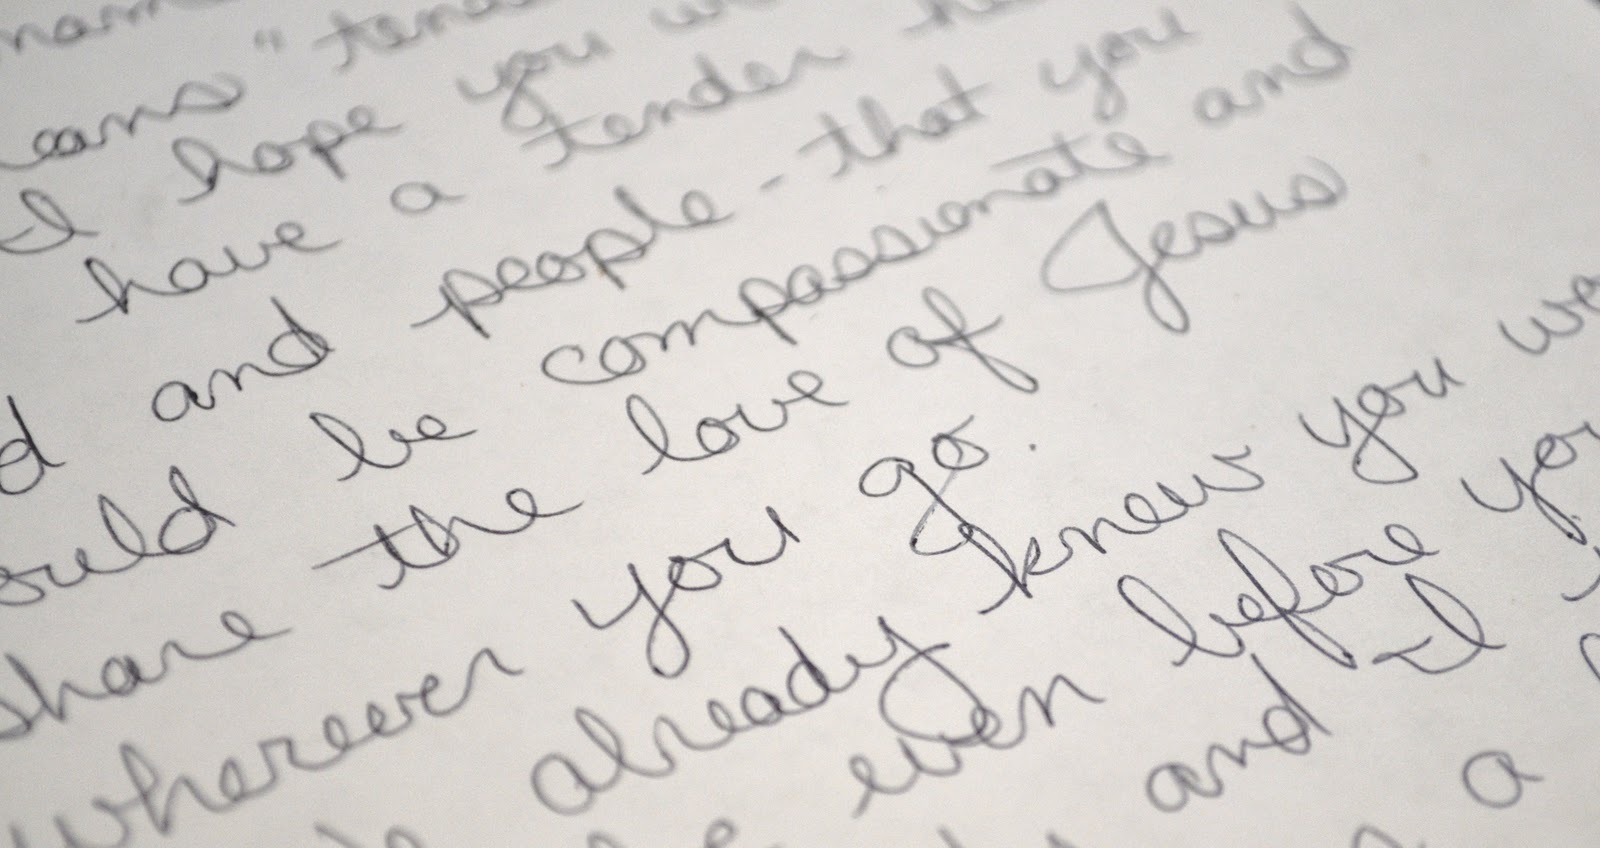 eans "tende
I hope you w
have a tender he
d and people - that you
ould be compassionate and
share the love of Jesus
wherever you go.
already knew you w
even before yo
and I
a